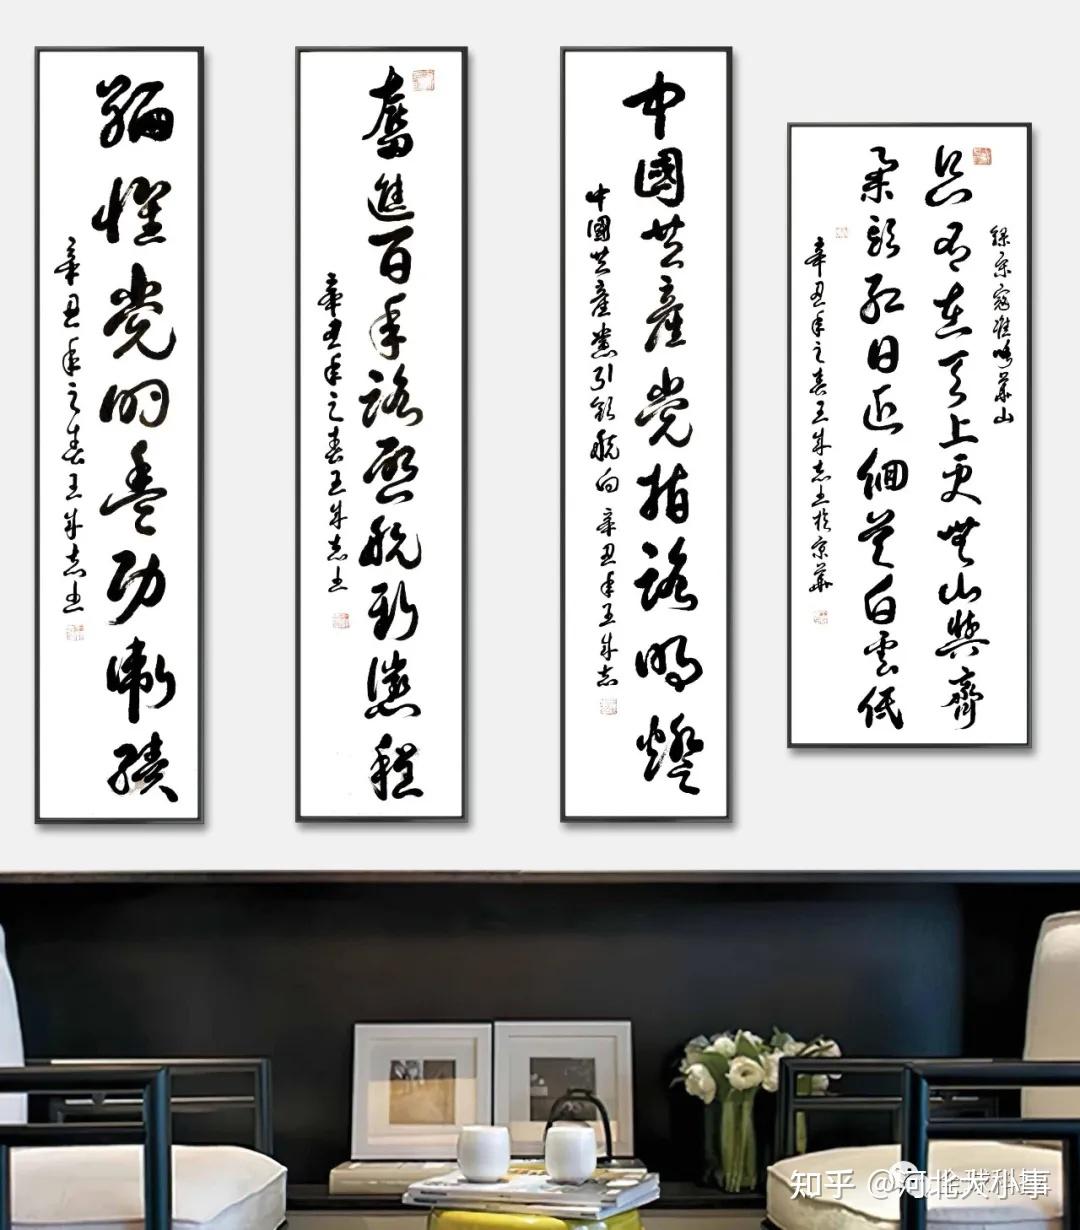 錄宋寇准咏華山
只有在天上更無山與齊
舉頭紅日近徊首白雲低
辛丑年之春王成志书於京華
中國共產党指路明燈
中國共產黨引領航向 辛丑年王成志
奮進百年路啟航新徵程
辛丑年之春王成志书
緬懷党的豐功偉績
辛丑年之春王成志书
知乎 @河北大小事